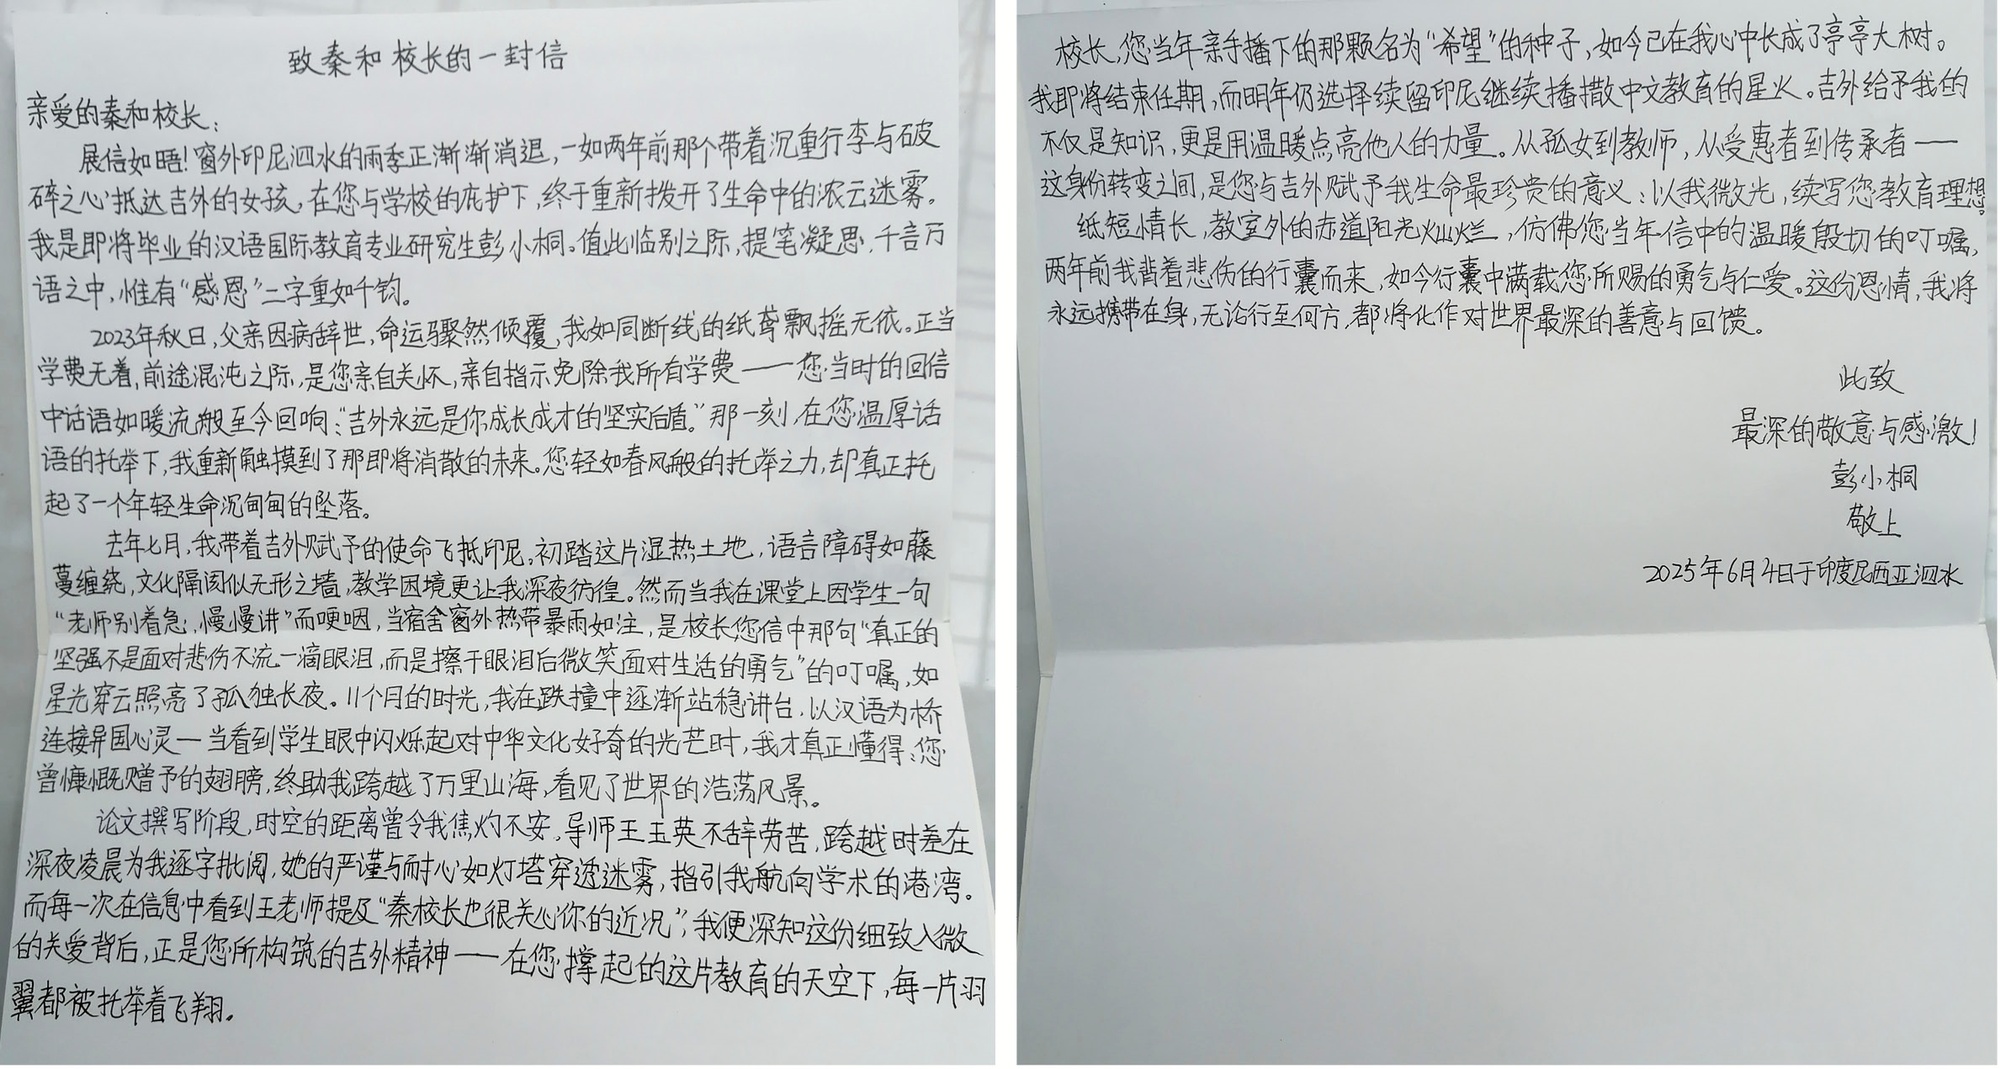 致秦和校长的一封信
亲爱的秦和校长：
展信如晤！窗外印尼泗水的雨季正渐渐消退，一如两年前那个带着沉重行李与破
碎之心抵达吉外的女孩，在您与学校的庇护下，终于重新拨开了生命中的浓云迷雾。
我是即将毕业的汉语国际教育专业研究生彭小桐。值此临别之际，提笔凝思，千言万
语之中，惟有“感恩”二字重如千钧。
2023年秋日，父亲因病辞世，命运骤然倾覆，我如同断线的纸鸢飘摇无依。正当
学费无着，前途混沌之际，是您亲自关怀，亲自指示免除我所有学费——您当时的回信
中话语如暖流般至今回响：“吉外永远是你成长成才的坚实后盾。”那一刻，在您温厚话
语的托举下，我重新触摸到了那即将消散的未来。您轻如春风般的托举之力，却真正托
起了一个年轻生命沉甸甸的坠落。
去年七月，我带着吉外赋予的使命飞抵印尼。初踏这片湿热土地，语言障碍如藤
蔓缠绕，文化隔阂似无形之墙，教学困境更让我深夜彷徨。然而当我在课堂上因学生一句
“老师别着急，慢慢讲”而哽咽，当宿舍窗外热带暴雨如注，是校长您信中那句“真正的
坚强不是面对悲伤不流一滴眼泪，而是擦干眼泪后微笑面对生活的勇气”的叮嘱，如
星光穿云照亮了孤独长夜。11个月的时光，我在跌撞中逐渐站稳讲台，以汉语为桥
连接异国心灵—当看到学生眼中闪烁起对中华文化好奇的光芒时，我才真正懂得：您
曾慷慨赠予的翅膀，终助我跨越了万里山海，看见了世界的浩荡风景。
论文撰写阶段，时空的距离曾令我焦灼不安，导师王玉英不辞劳苦，跨越时差在
深夜凌晨为我逐字批阅，她的严谨与耐心如灯塔穿透迷雾，指引我航向学术的港湾。
而每一次在信息中看到王老师提及“秦校长也很关心你的近况”，我便深知这份细致入微
的关爱背后，正是您所构筑的吉外精神——在您撑起的这片教育的天空下，每一片羽
翼都被托举着飞翔。
校长，您当年亲手播下的那颗名为“希望”的种子，如今已在我心中长成了亭亭大树。
我即将结束任期，而明年仍选择续留印尼继续播撒中文教育的星火。吉外给予我的
不仅是知识，更是用温暖点亮他人的力量。从孤女到教师，从受惠者到传承者——
这身份转变之间，是您与吉外赋予我生命最珍贵的意义：以我微光，续写您教育理想。
纸短情长，教室外的赤道阳光灿烂，仿佛您当年信中的温暖殷切的叮嘱，
两年前我背着悲伤的行囊而来，如今行囊中满载您所赐的勇气与仁爱。这份恩情，我将
永远携带在身，无论行至何方，都将化作对世界最深的善意与回馈。
此致
最深的敬意与感激！
彭小桐
敬上
2025年6月4日于印度尼西亚泗水